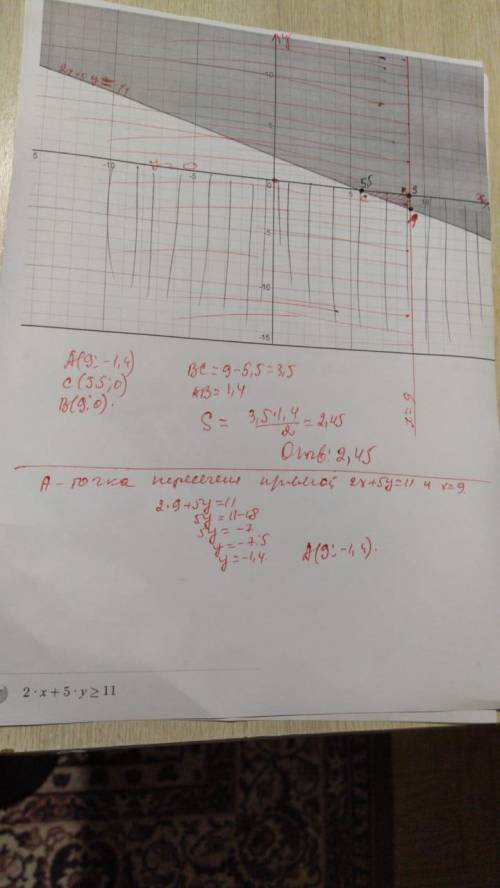 y
10
2x+5y=11
5
5
-10
y=0
-5
0
5,5
5
C
B
9
A
10
x
-5
-10
-15
x=9
A(9;-1,4)
C(5,5;0)
B(9;0).
BC=9-5,5=3,5
AB=1,4
S= 3,5·1,4/2 =2,45
Ответ: 2,45
A-точка пересечения прямой 2x+5y=11 и x=9.
2·9+5y=11
5y=11-18
5y=-7
y=-7:5
y=-1,4.
A(9;-1,4).
2·x+5·y≥11